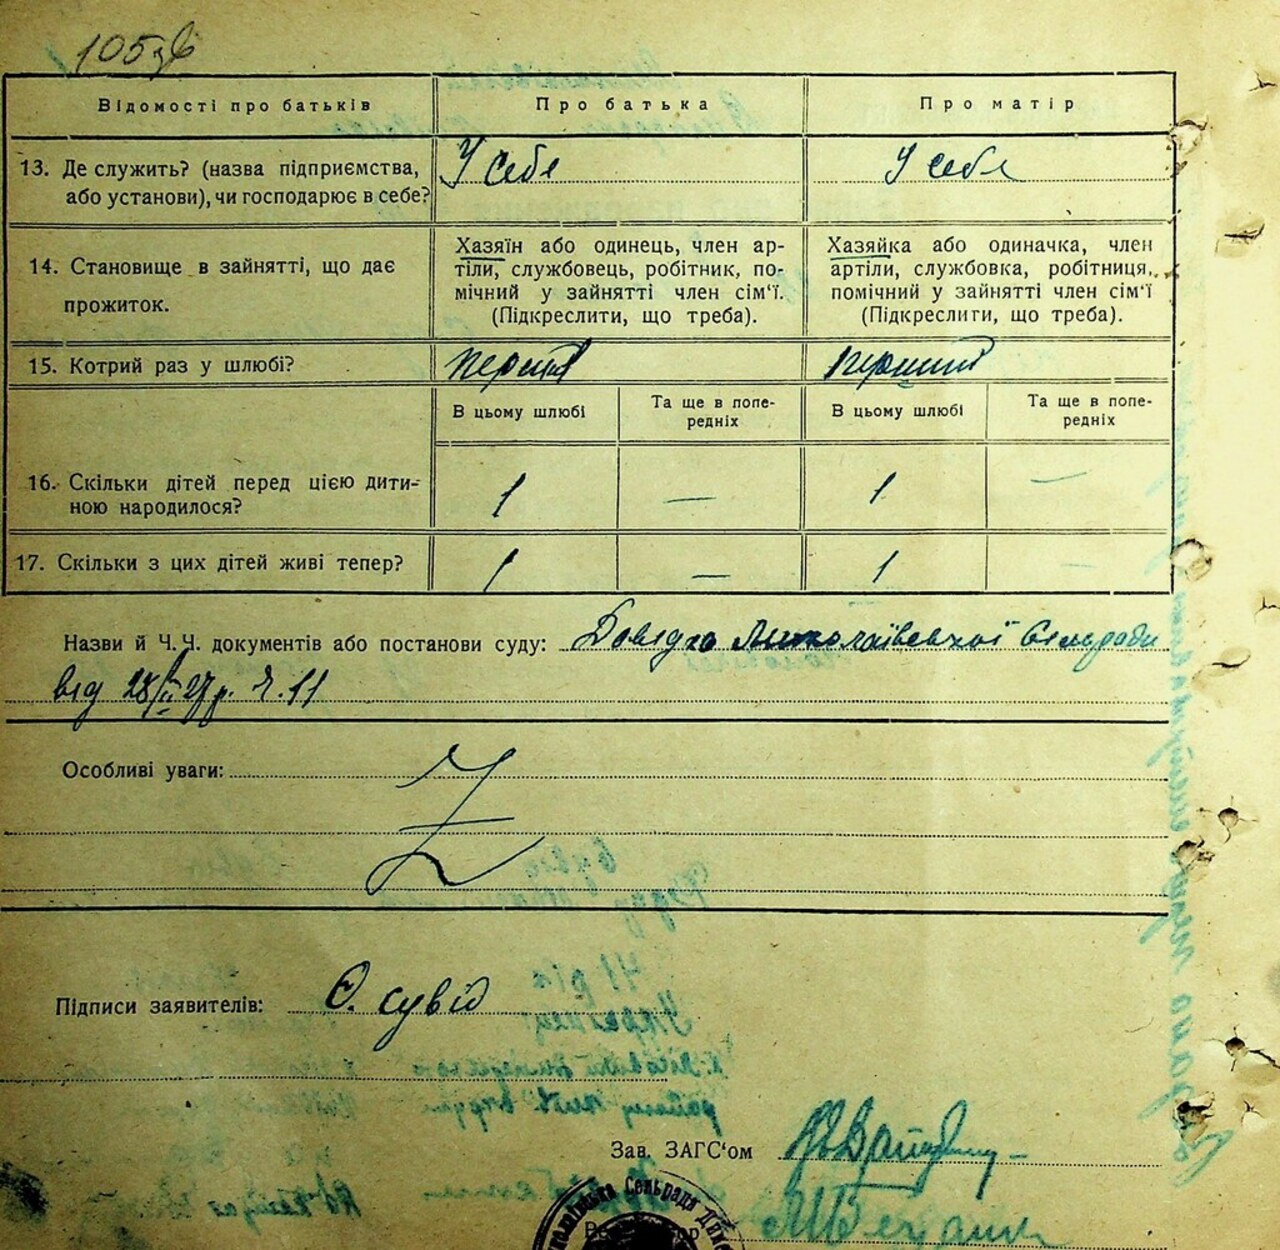 105зв
Відомості про батьків
Про батька
Про матір
13. Де служить? (назва підприємства,
або установи), чи господарює в себе?
У себе
У себе
14. Становище в зайнятті, що дає
прожиток.
Хазяїн або одинець, член ар-
тіли, службовець, робітник, по-
мічний у зайнятті член сім'ї.
(Підкреслити, що треба).
Хазяйка або одиначка, член
артіли, службовка, робітниця,
помічний у зайнятті член сім'ї
(Підкреслити, що треба).
15. Котрий раз у шлюбі?
перший
перший
В цьому шлюбі
Та ще в попе-
редніх
В цьому шлюбі
Та ще в попе-
редніх
16. Скільки дітей перед цією дити-
ною народилося?
1
—
1
—
17. Скільки з цих дітей живі тепер?
1
—
1
—
Назви й Ч.Ч. документів або постанови суду: Довідка Миколаївської Сельради
від 28/ 27р. Ч. 11
Особливі уваги:
Z
Підписи заявителів: Є. сувід
Зав. ЗАГС'ом
Сельрада